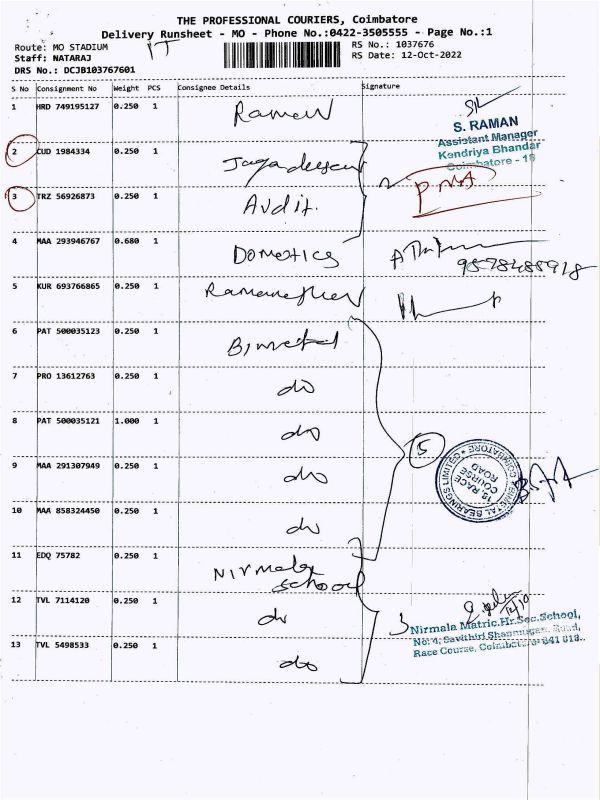 THE PROFESSIONAL COURIERS, Coimbatore
Delivery Runsheet - MO - Phone No.:0422-3505555 - Page No.:1
Route: MO STADIUM
RS No.: 1037676
Staff: NATARAJ
RS Date: 12-Oct-2022
DRS No.: DCJB103767601
S No Consignment No Weight PCS Consignee Details Signature
1 HRD 749195127 0.250 1 Raman
S. RAMAN
Assistant Manager
Kendriya Bhandar
Coimbatore - 18
2 CUD 1984334 0.250 1 Jagadeesan
3 TRZ 56926873 0.250 1 Audit.
4 MAA 293946767 0.680 1 Domestics
9578488918
5 KUR 693766865 0.250 1
6 PAT 500035123 0.250 1 Bimetal
7 PRO 13612763 0.250 1 do
8 PAT 500035121 1.000 1 do
5
9 MAA 291307949 0.250 1 do
BIMETAL BEARINGS LIMITED COIMBATORE
18 RACE
COURSE
ROAD
10 MAA 858324450 0.250 1 do
11 EDQ 75782 0.250 1 Nirmala
School
12 TVL 7114120 0.250 1 do
3
Nirmala Matric.Hr.Sec.School,
No: 4, Savithiri Shanmugam Road,
Race Course, Coimbatore-641 018.
13 TVL 5498533 0.250 1 do